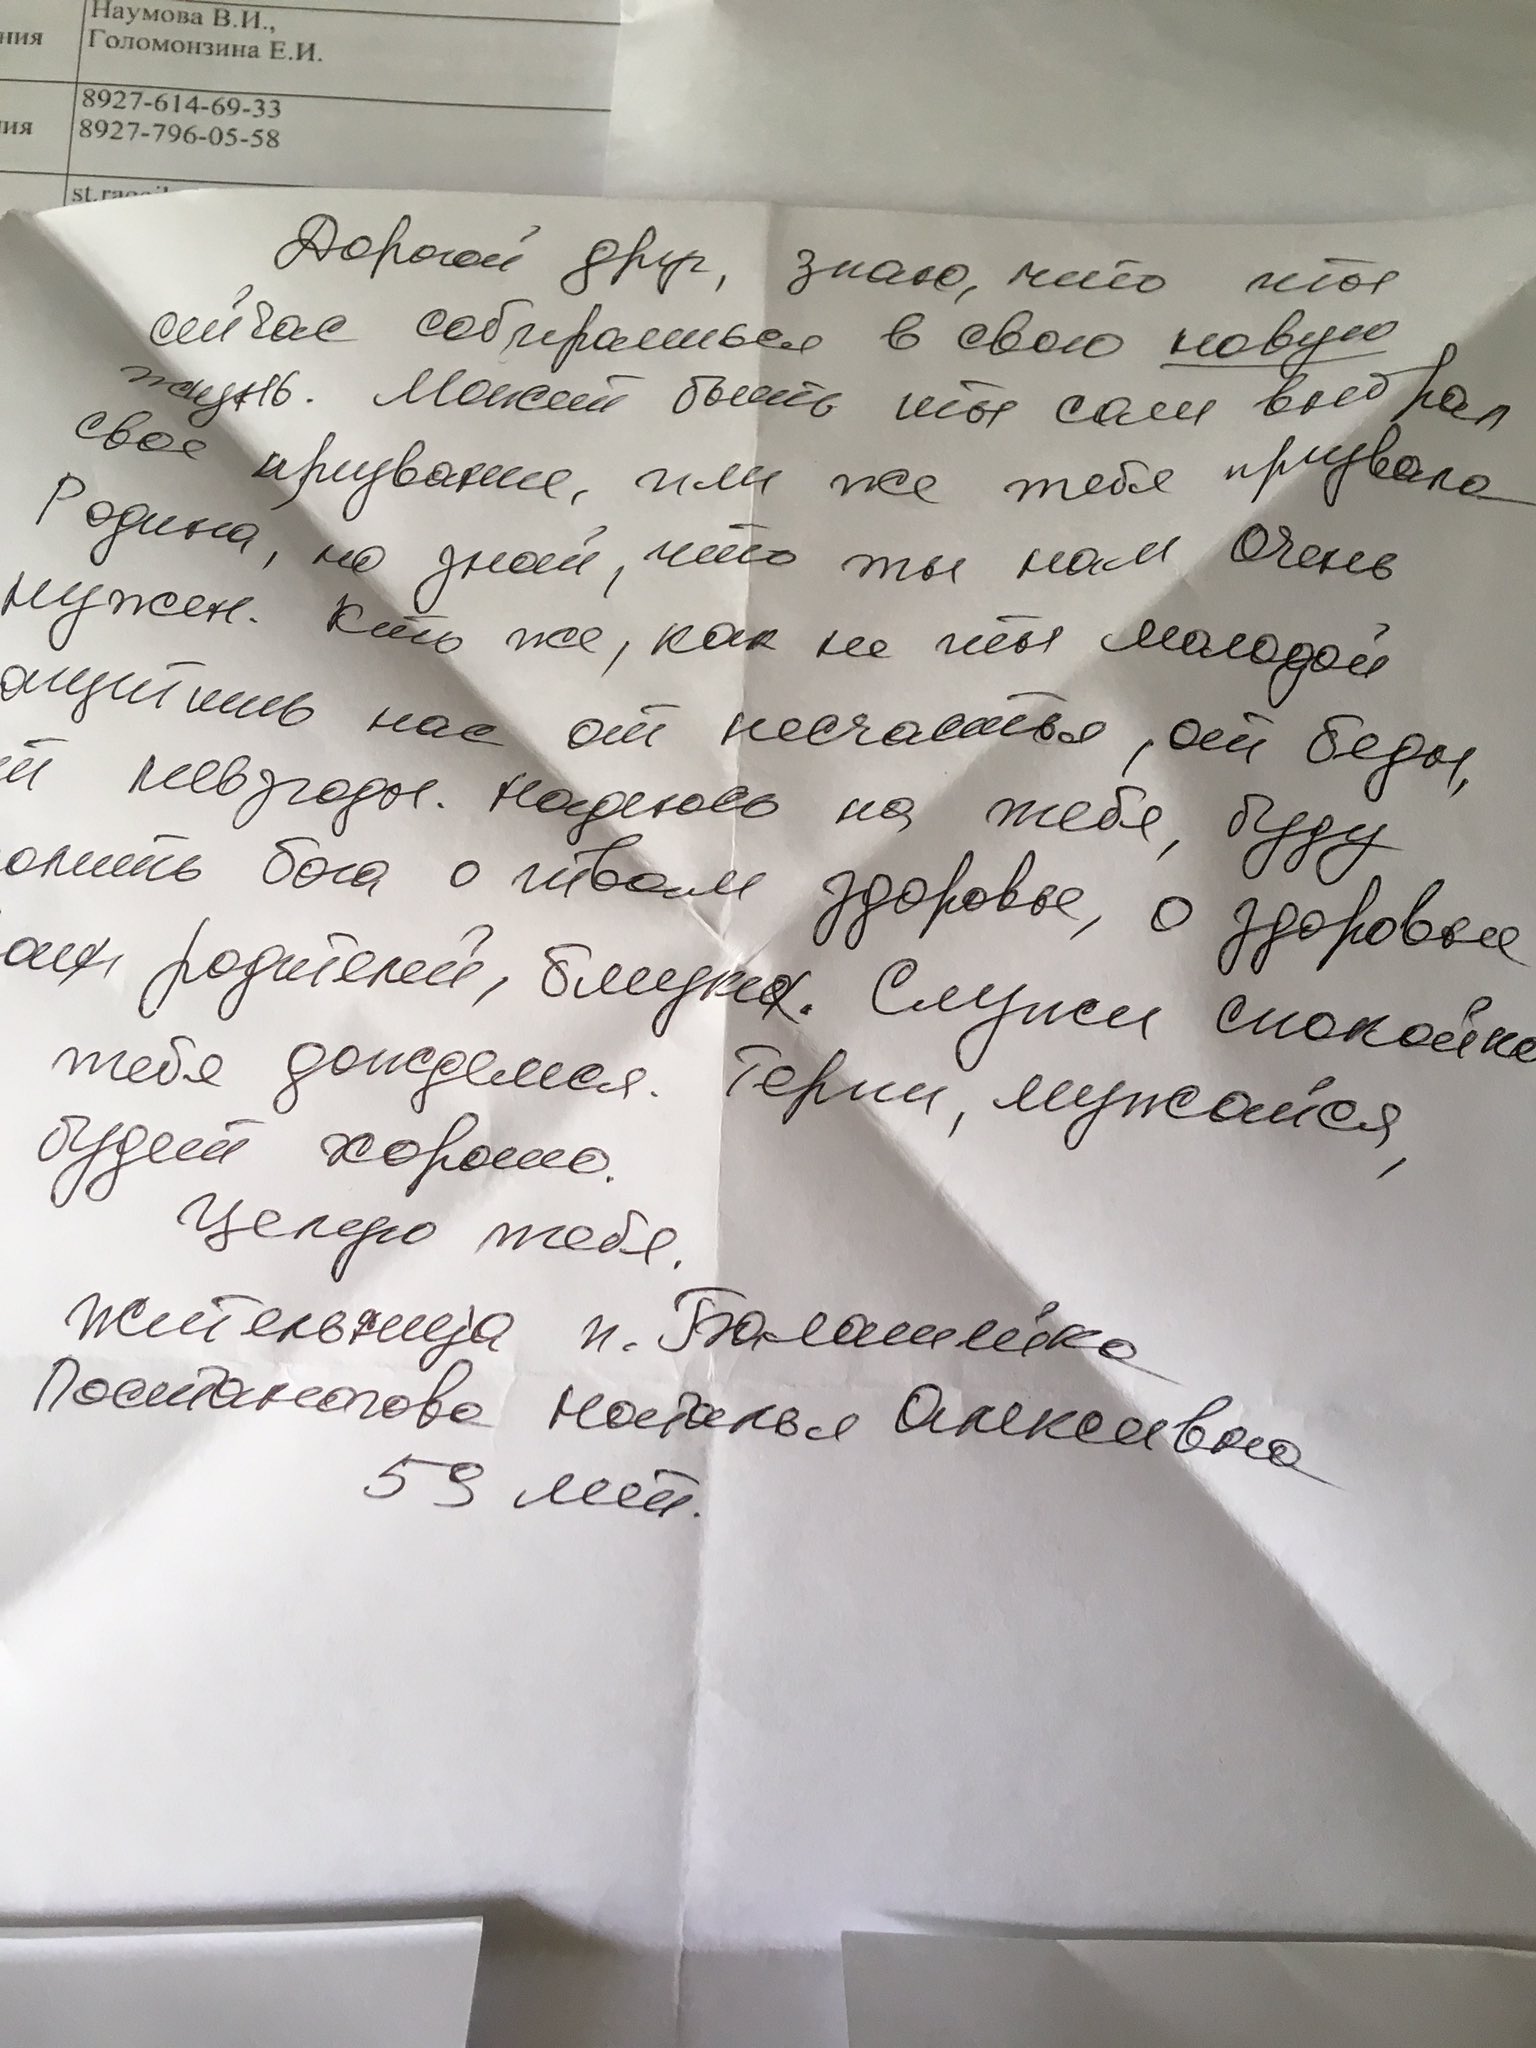 ния
Наумова В.И.,
Голомонзина Е.И.
ния
8927-614-69-33
8927-796-05-58
Дорогой друг, знаю, что ты
сейчас собираешься в свою новую
жизнь. Может быть ты сам выбрал
свое призвание, или же тебя призвала
Родина, но знай, что ты нам очень
нужен. Кто же, как не ты молодой
ащитишь нас от несчастья, от беды,
т невзгоды. Надеюсь на тебя, буду
олить бога о твоем здоровье, о здоровье
оих родителей, близких. Служи спокойно
тебя дождемся. Терпи, мужайся,
будет хорошо.
Целую тебя.
Жительница п. Балашейка
Постаногова Наталья Алексеевна
59 лет.